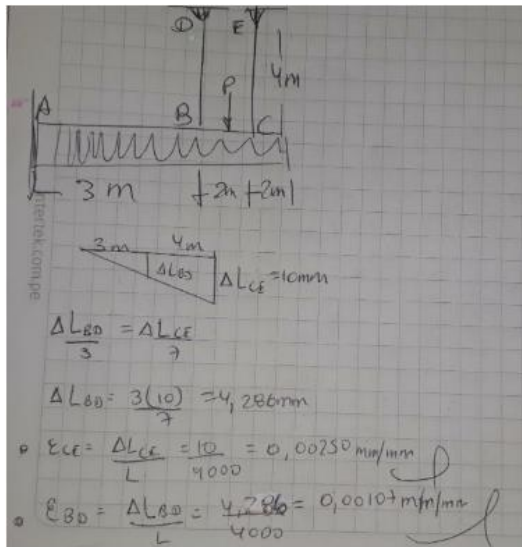 D E
4m
P
A B C
3 m 2m 2m
ntertek.com.pe
3m 4m
ΔL_BD ΔL_CE = 10mm
ΔL_BD/3 = ΔL_CE/7
ΔL_BD = 3(10)/7 = 4,286mm
ε_CE = ΔL_CE/L = 10/4000 = 0,00250 mm/mm
ε_BD = ΔL_BD/L = 4,286/4000 = 0,00107 mm/mm